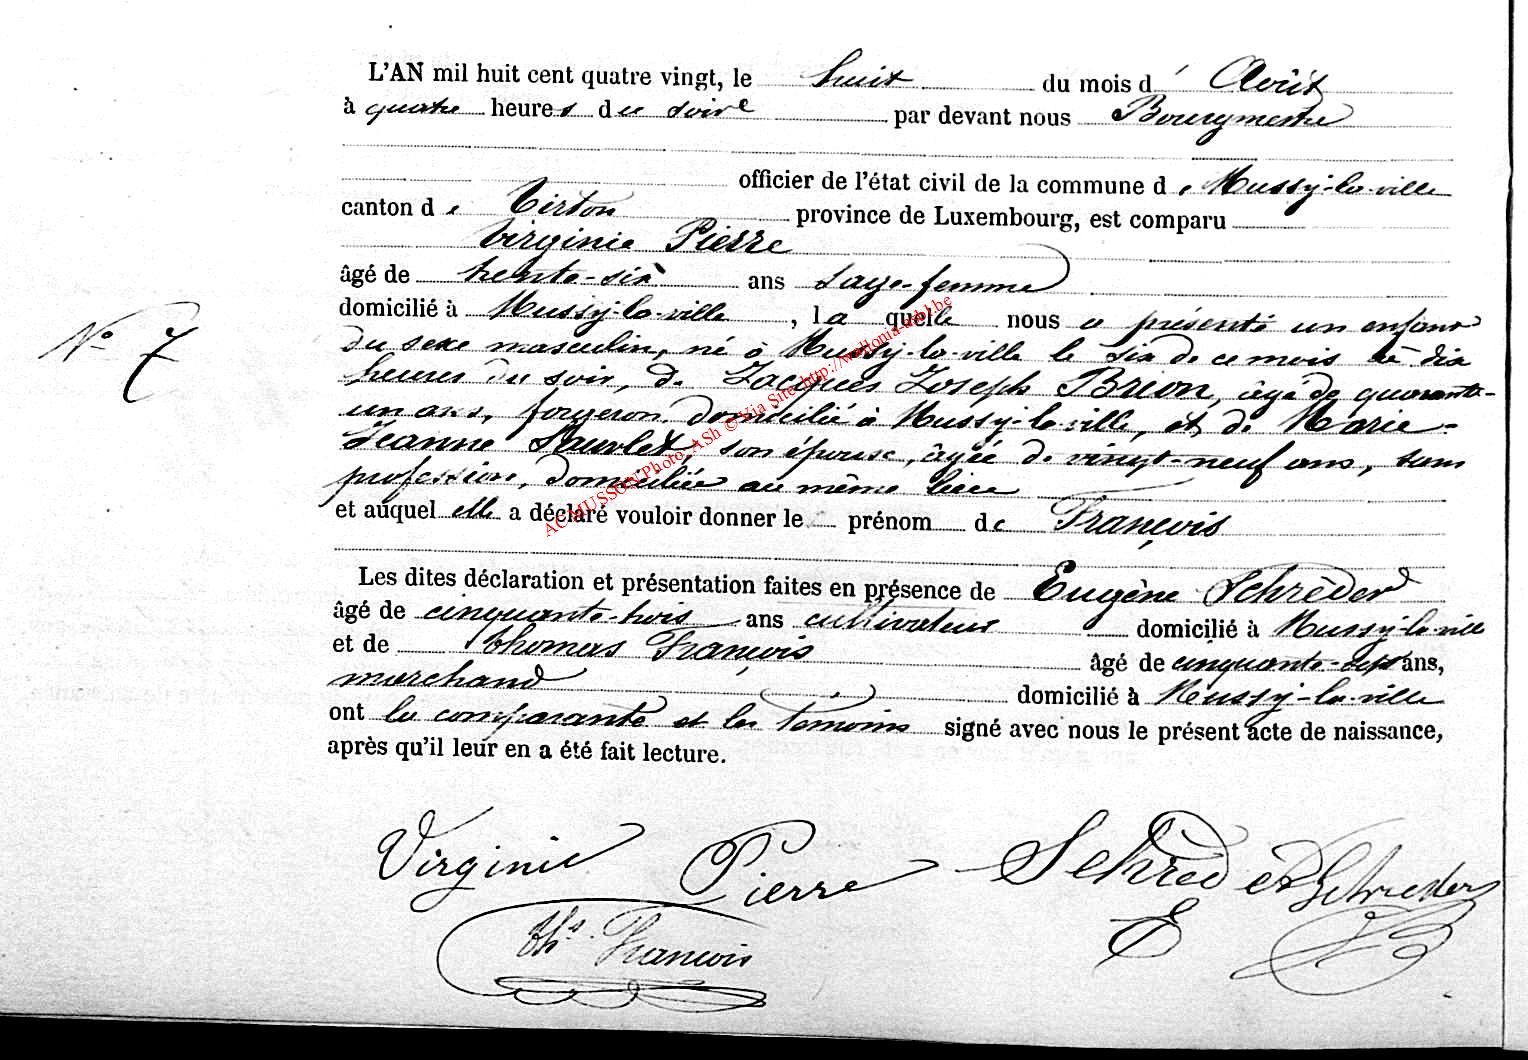 L'AN mil huit cent quatre vingt, le huit du mois d' Août
à quatre heures du soir par devant nous Bourgmestre
officier de l'état civil de la commune de Mussy-la-ville
canton de Virton province de Luxembourg, est comparu
Virginie Pierre
âgé de trente-six ans Sage-femme
domicilié à Mussy-la-ville, laquelle nous a présenté un enfant
du sexe masculin, né à Mussy-la-ville le six de ce mois à dix
heures du soir, de Jacques Joseph Brion, âgé de quarante-
un ans, forgeron, domicilié à Mussy-la-ville, et de Marie-
Jeanne son épouse, âgée de vingt-neuf ans, sans
profession, domiciliée au même lieu
et auquel elle a déclaré vouloir donner le prénom de François
N° 7
Les dites déclaration et présentation faites en présence de Eugène Schréder
âgé de cinquante-trois ans cultivateur domicilié à Mussy-la-ville
et de thomas François âgé de cinquante-sept ans,
marchand domicilié à Mussy-la-ville
ont la comparante et les témoins signé avec nous le présent acte de naissance,
après qu'il leur en a été fait lecture.
Virginie Pierre Schréder
E
ths François
AC MUSSON Photo ASh © Via Site http://wallonia-asbl.be